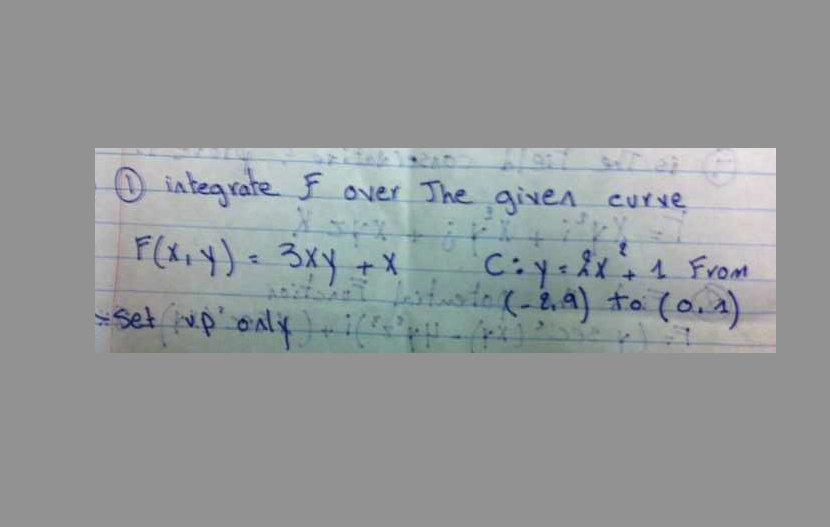 ① integrate F over The given curve
F(x, y) = 3xy + x C: y = 2x² + 1 From
(-2,9) to (0,1)
set up only